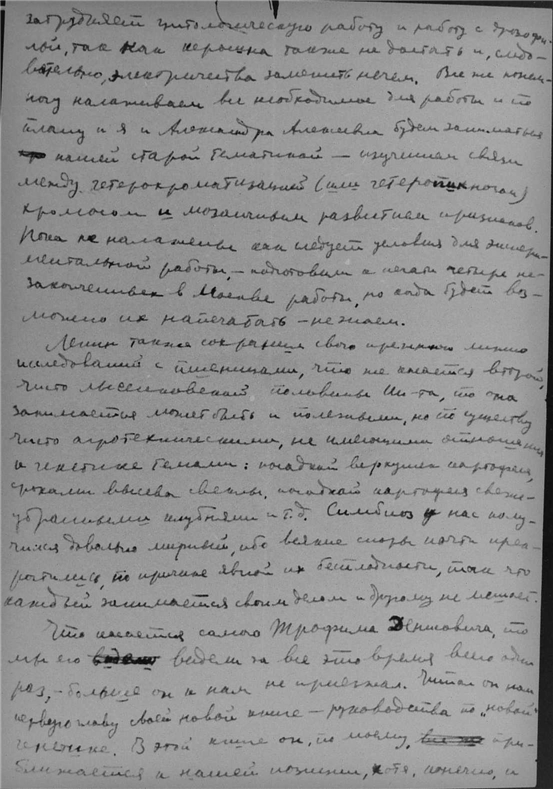 затрудняет цитологическую работу и работу с дрозофи-
лой, так как керосина также не достать и, следо-
вательно, электричества заменить нечем. Все же понем-
ногу налаживаем все необходимое для работы и по
плану и я и Александра Алексеевна будем заниматься
нашей старой тематикой — изучением связи
между гетерохроматизацией (или гетеропикнозом)
хромосом и мозаичным развитием признаков.
Пока не налажены как следует условия для экспери-
ментальной работы, — подготовили к печати четыре не-
законченных в Москве работы, но когда будет воз-
можно их напечатать — не знаем.
также сохранил свою прежнюю линию
исследований с пшеницами, что же касается второй,
чисто лысенковской половины Ин-та, то она
занимается может быть и полезными, но по существу
чисто агротехническими, не имеющими отношения
к генетике темами: посадкой верхушек картофеля,
сроками высева свеклы, посадкой картофеля свеже-
убранными клубнями и т.д. Симбиоз у нас полу-
чился довольно мирный, ибо всякие споры почти прек-
ратились, по причине явной их бесплодности, так что
каждый занимается своим делом и другому не мешает.
Что касается самого Трофима Денисовича, то
мы его видели за все это время всего один
раз, — больше он к нам не приезжал. Читал он нам
первую главу своей новой книги — руководства по „новой"
генетике. В этой книге он, по моему, при-
ближается к нашей позиции, хотя, конечно, и